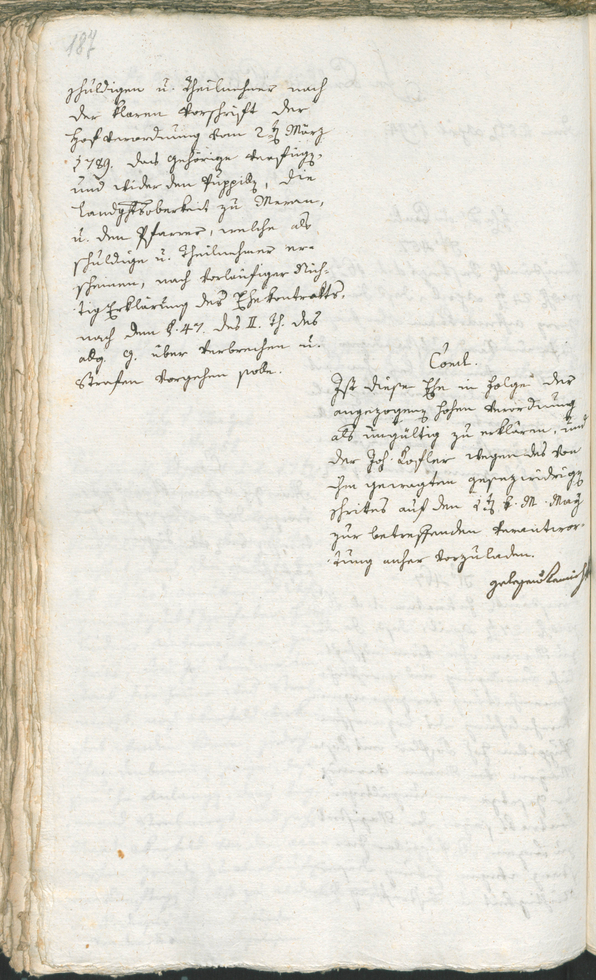 187
schuldigen u. Theilnehmer nach
der klaren Vorschrift der
Hofverordnung vom 2t März
1789. das gehörige verfüge,
und wider den Puppill, die
Landgftsoberkeit zu Meran,
u. den Pfarrer, welche als
schuldige u. Theilnehmer er-
scheinen, nach vorläufiger Nich-
tig Erklärung des Ehekontrakts,
nach dem §. 47. des II. Th. des
allg. G. über Verbrechen u.
Strafen vorgehen solle.
Concl.
Ist diese Ehe in Folge der
angezogenen hohen Verordnung
als ungültig zu erklären, und
der Joh. Kofler wegen des von
ihm gewagten gesezwidrigen
Schrittes auf den k. M. May
zur betreffenden Verantwor-
tung anher vorzuladen.